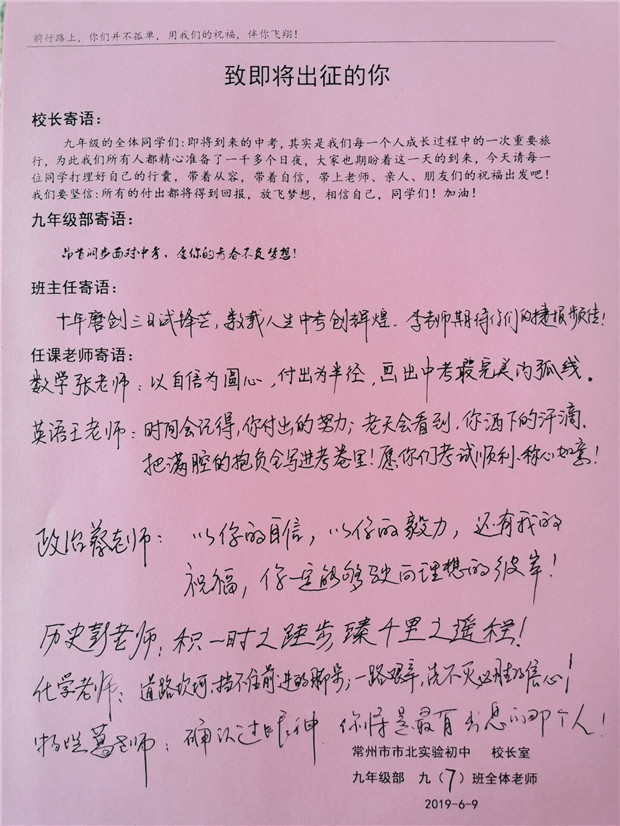 前行路上，你们并不孤单，用我们的祝福，伴你飞翔！
致即将出征的你
校长寄语：
九年级的全体同学们：即将到来的中考，其实是我们每一个人成长过程中的一次重要旅
行，为此我们所有人都精心准备了一千多个日夜，大家也期盼着这一天的到来，今天请每一
位同学打理好自己的行囊，带着从容，带着自信，带上老师、亲人、朋友们的祝福出发吧！
我们要坚信：所有的付出都将得到回报，放飞梦想，相信自己，同学们！加油！
九年级部寄语：
昂首阔步面对中考，愿你的青春不负梦想！
班主任寄语：
十年磨剑三日试锋芒，数载人生中考创辉煌．李老师期待你们的捷报频传！
任课老师寄语：
数学张老师：以自信为圆心，付出为半径，画出中考最完美的弧线。
英语王老师：时间会记得，你付出的努力；老天会看到，你洒下的汗滴．
把满腔的抱负全写进考卷里！愿你们考试顺利、称心如意！
政治蔡老师：以你的自信，以你的毅力，还有我的
祝福，你一定能够驶向理想的彼岸！
历史彭老师：积一时之跬步，臻千里之遥程！
化学老师：道路坎坷，挡不住前进的脚步；一路艰辛，浇不灭必胜的信心！
物理葛老师：确认过眼神，你将是最有出息的那个人！
常州市市北实验初中 校长室
九年级部 九（7）班全体老师
2019-6-9